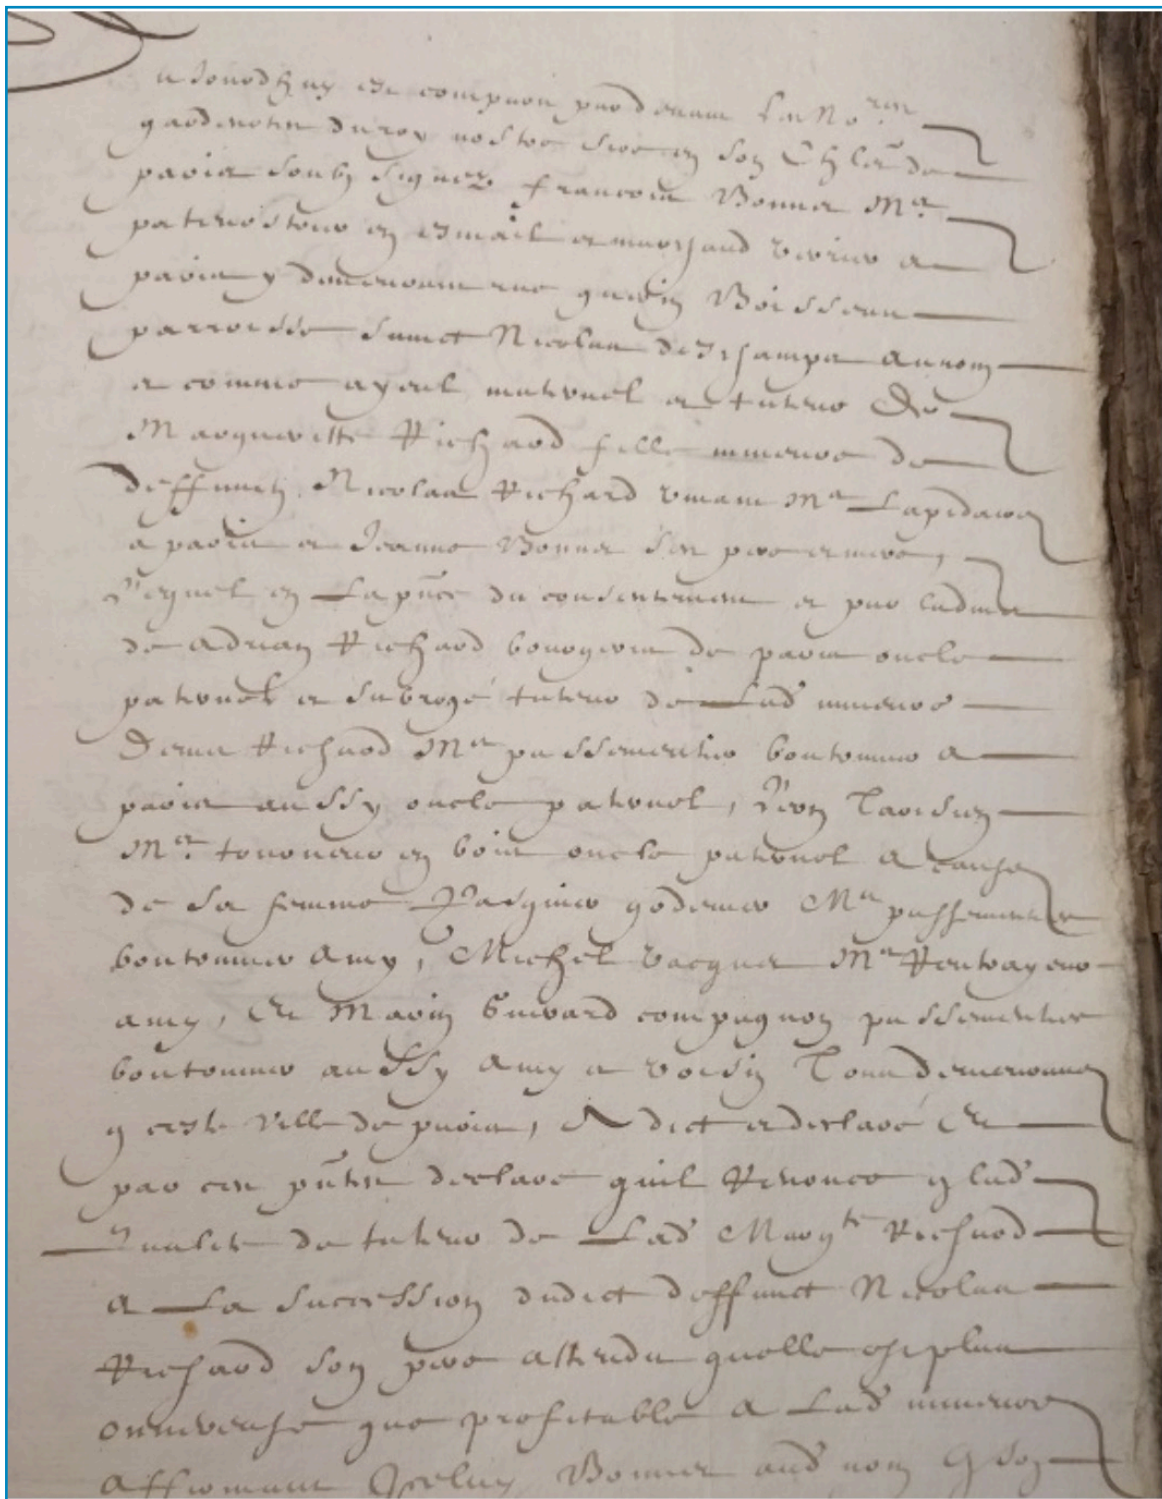 Aujourdhuy est comparu pardevant les No.res
gardenottes du roy nostre sire en son Chlet de
paris soubz signez francois Bonnet Me
patenostrier en esmail et marchand verrier a
paris y demeurant rue guerin Boisseau
parroisse sainct Nicolas des champs au nom
et comme ayeul maternel et tuteur de
Margueritte Richard fille mineure de
deffunctz Nicolas Richard vivant Me Lapidaire
a paris et Jeanne Bonnet ses pere et mere,
Lequel en La pnce du consentement et par ladvis
de Adrian Richard bourgeois de paris oncle
paternel et subrogé tuteur de Lad mineure
Denis Richard Me passementier boutonnier a
paris aussy oncle paternel, Leon
Me tourneur en bois oncle paternel a cause
de sa femme Pasquier godemer Me passementier
boutonnier amy, Michel vacquet Me
amy, Et Marin compagnon passementier
boutonnier aussy amy et voisin Tous demeurans
en ceste ville de paris, A dict et declaré Et
par ces pntes declare quil Renonce en lad
Qualité de tuteur de Lad Margte Richard
a La succession dudict deffunct Nicolas
Richard son pere attendu quelle est plus
onnereuse que profitable a Lad mineure
affirmant Icelluy Bonnet aud nom